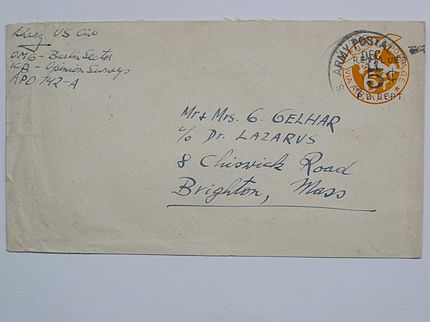 US Civ
OMG - Berlin Sector
Opinion Surveys
APO 742-A
U.S. ARMY POSTAL
DEC
REVALUED
5¢
P.O. DEPT.
Mr + Mrs. G. GELHAR
c/o Dr. LAZARUS
8 Chiswick Road
Brighton, Mass